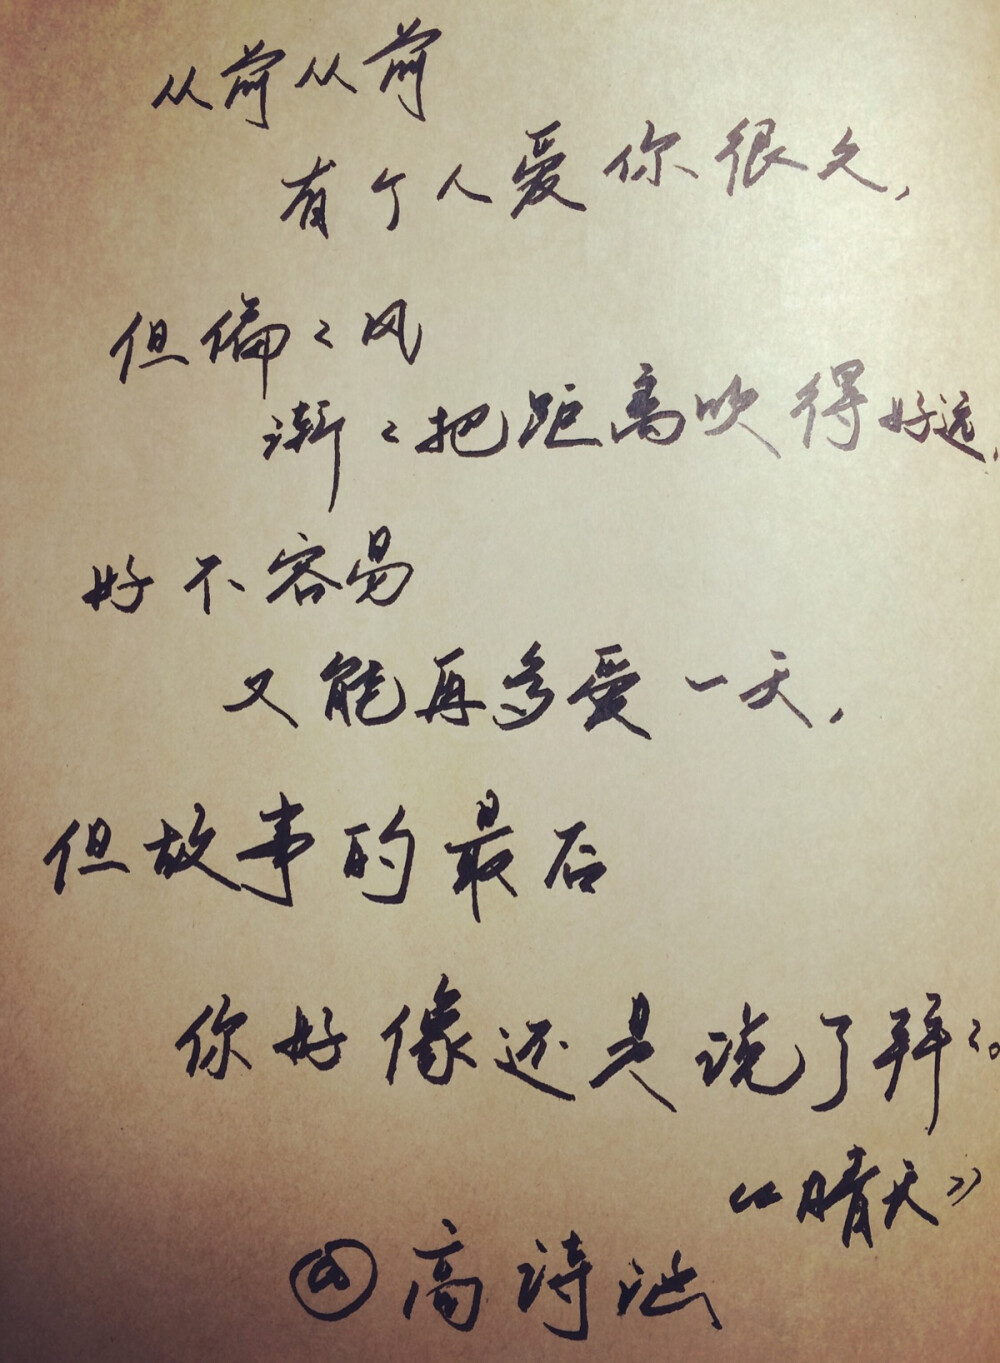 从前从前
有个人爱你很久，
但偏々风
渐々把距离吹得好远，
好不容易
又能再多爱一天，
但故事的最后
你好像还是说了拜々。
《晴天》
@高诗涵